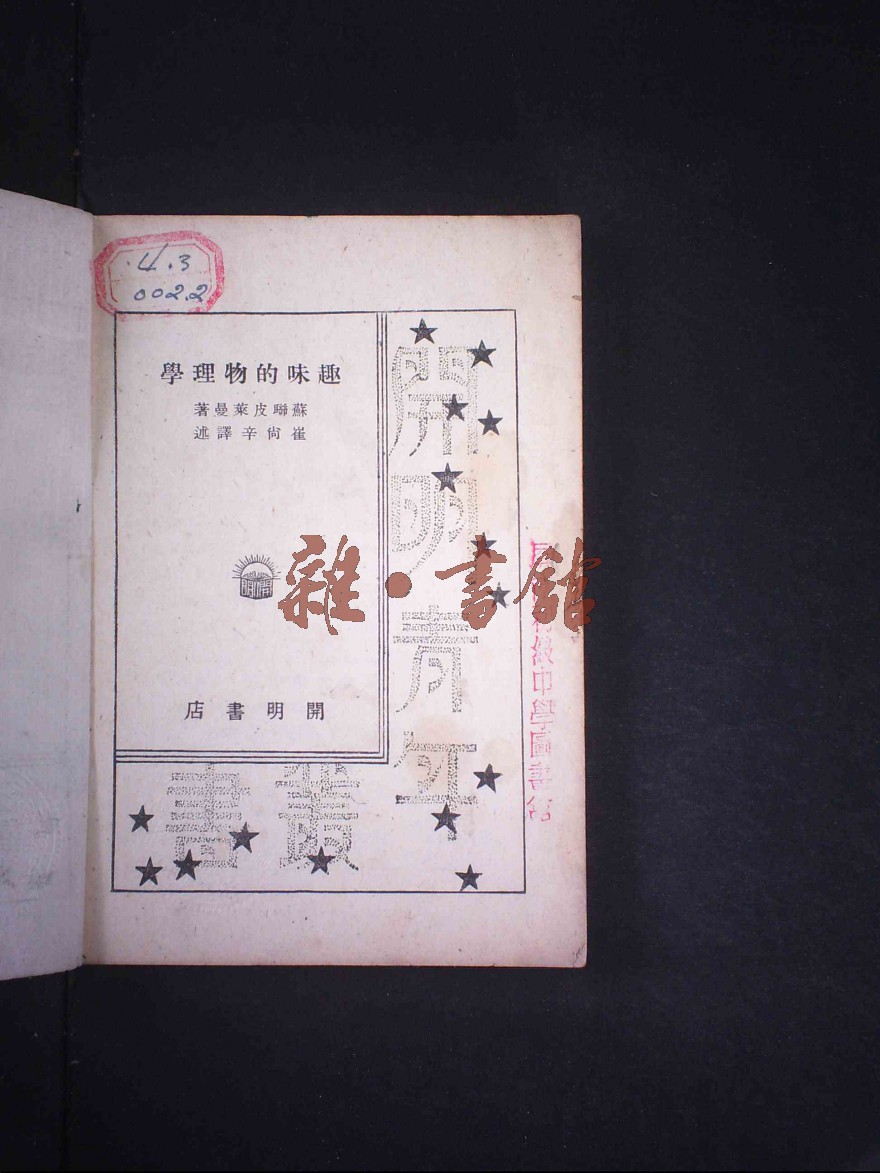 4.3
002.2
趣味的物理學
蘇聯皮萊曼著
崔尙辛譯述
開明
開明書店
開明青年
叢書
雜·書館
級中學圖書館